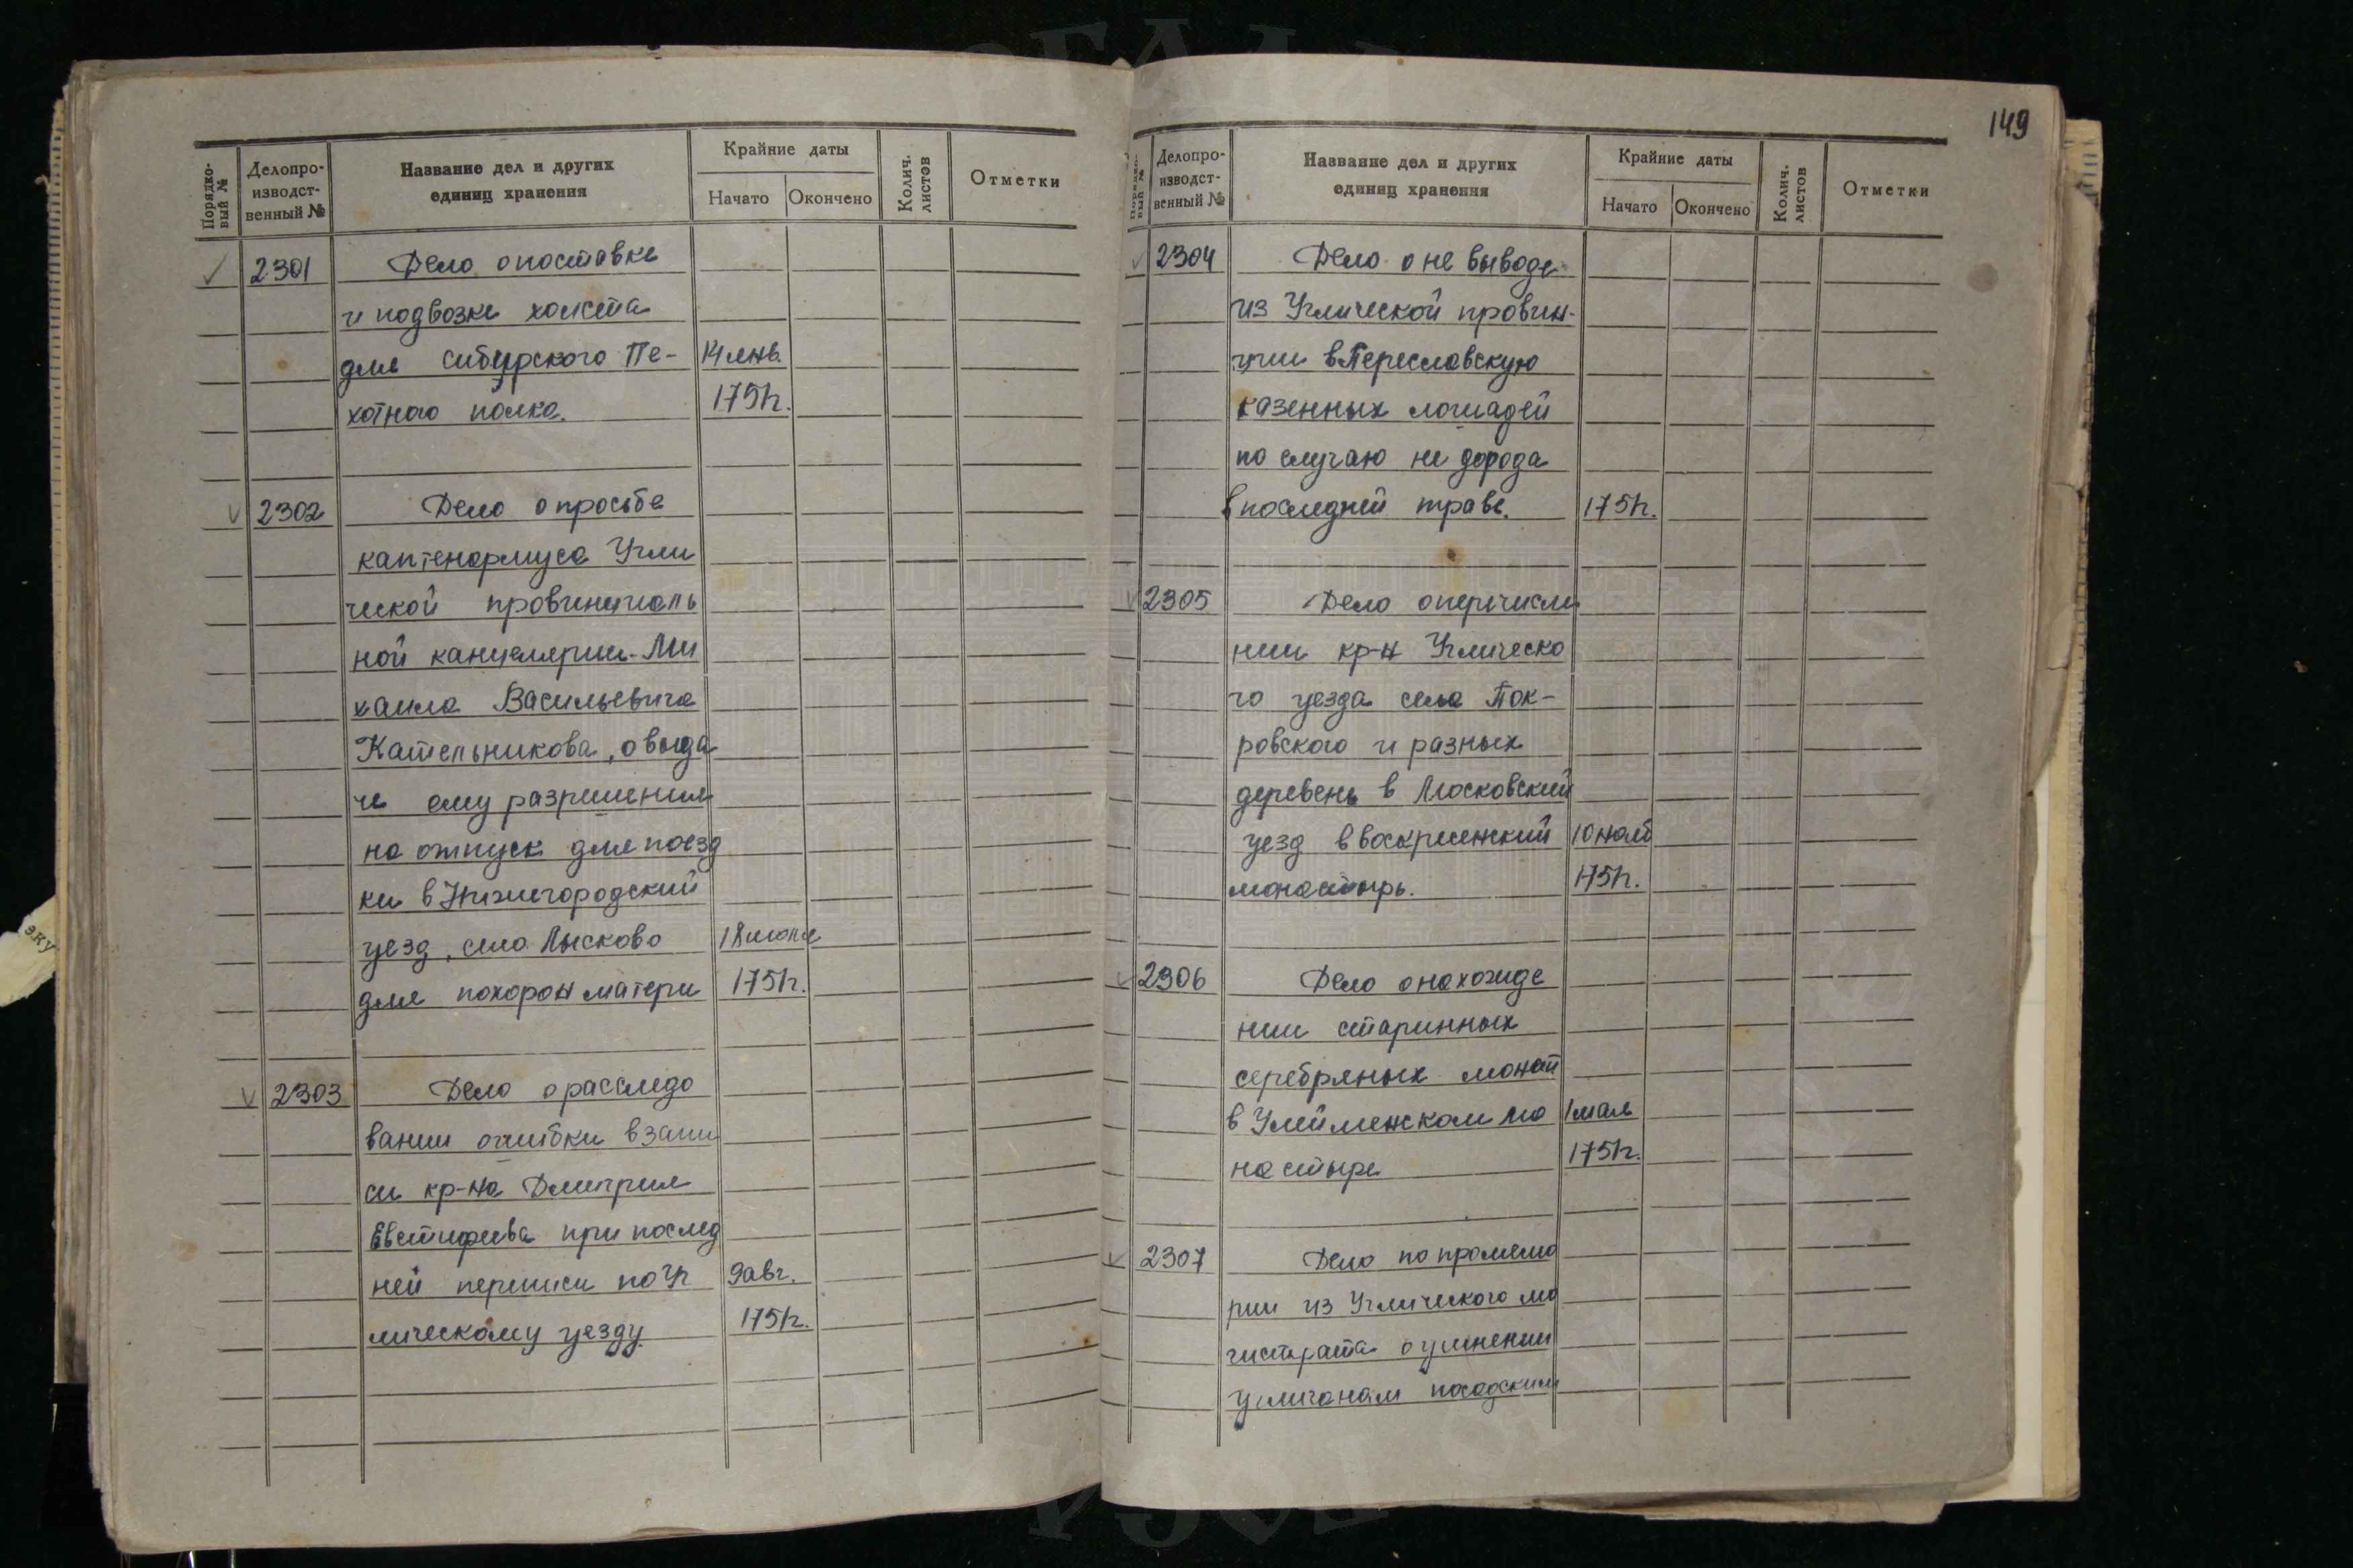 149
Порядко-
вый №
Делопро-
изводст-
венный №
Название дел и других
единиц хранения
Крайние даты
Начато
Окончено
Колич.
листов
Отметки
2301 Дело о поставке
и подвозке холста
для сибирского Пе- 14 янв.
хотного полка. 1751г.
2302 Дело о просьбе
каптенармуса Угли
ческой провинциаль
ной канцелярии Ми
хаила Васильевича
Кательникова, о выда
че ему разрешения
на отпуск для поезд
ки в Нижегородский
уезд, село Лысково 18 июля
для похорон матери 1751г.
2303 Дело о расследо
вании ошибки в запи
си кр-на Дмитрия
Евстифеева при послед
ней переписи по Уг 9 авг.
лическому уезду. 1751г.
Порядко-
вый №
Делопро-
изводст-
венный №
Название дел и других
единиц хранения
Крайние даты
Начато
Окончено
Колич.
листов
Отметки
2304 Дело о не выводе
из Углической провин-
ции в Переславскую
казенных лошадей
по случаю не дорода
в последней траве. 1751г.
2305 Дело о перечисле
нии кр-н Углическо
го уезда села Пок-
ровского и разных
деревень в Московский
уезд в воскресенский 10 нояб
монастырь. 1751г.
2306 Дело о нахожде
нии старинных
серебряных монет
в Улейменском мо 1 мая
настыре 1751г.
2307 Дело по промемо
рии из Углического ма
гистрата о учинении
угличанам посадским
эку